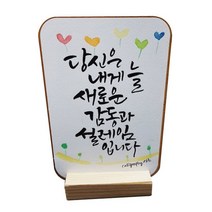 당신은
내게 늘
새로운
감동과
설레임
입니다